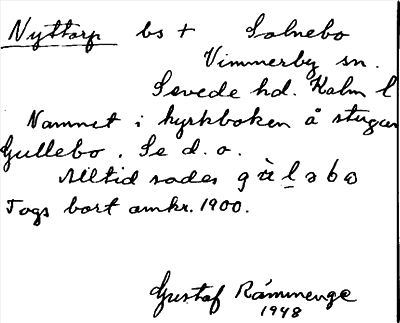 Nyttorp bs + Solnebo
Vimmerby sn.
Sevede hd. Kalm l
Namnet i kyrkboken å stugan
Gullebo. Se d. o.
Alltid sades
Togs bort omkr. 1900.
Gustaf Rämmenge
1948